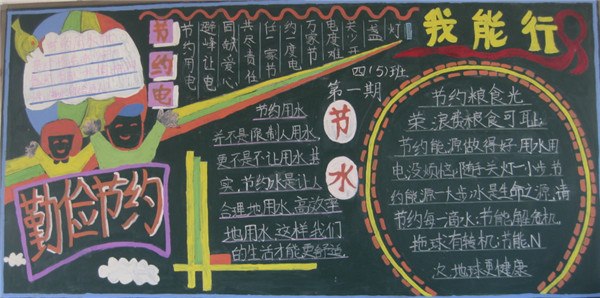 节约电
节约用电
避峰让电
同献爱心
共尽责任
盏灯
我能行
四(5)班
第一期
节水
节约用水
并不是限制人用水,
更不是不让用水.其
实,节约水是让人
合理地用水,高效率
地用水.这样,我们
的生活才能更舒适.
节约粮食光
荣,浪费粮食可耻;
节约能源做得好,用水用
电没烦恼;随手关灯一小步,节
约能源一大步;水是生命之源,请
节约每一滴水;节能解危机,
地球有转机;我能N
次,地球更健康
勤俭节约